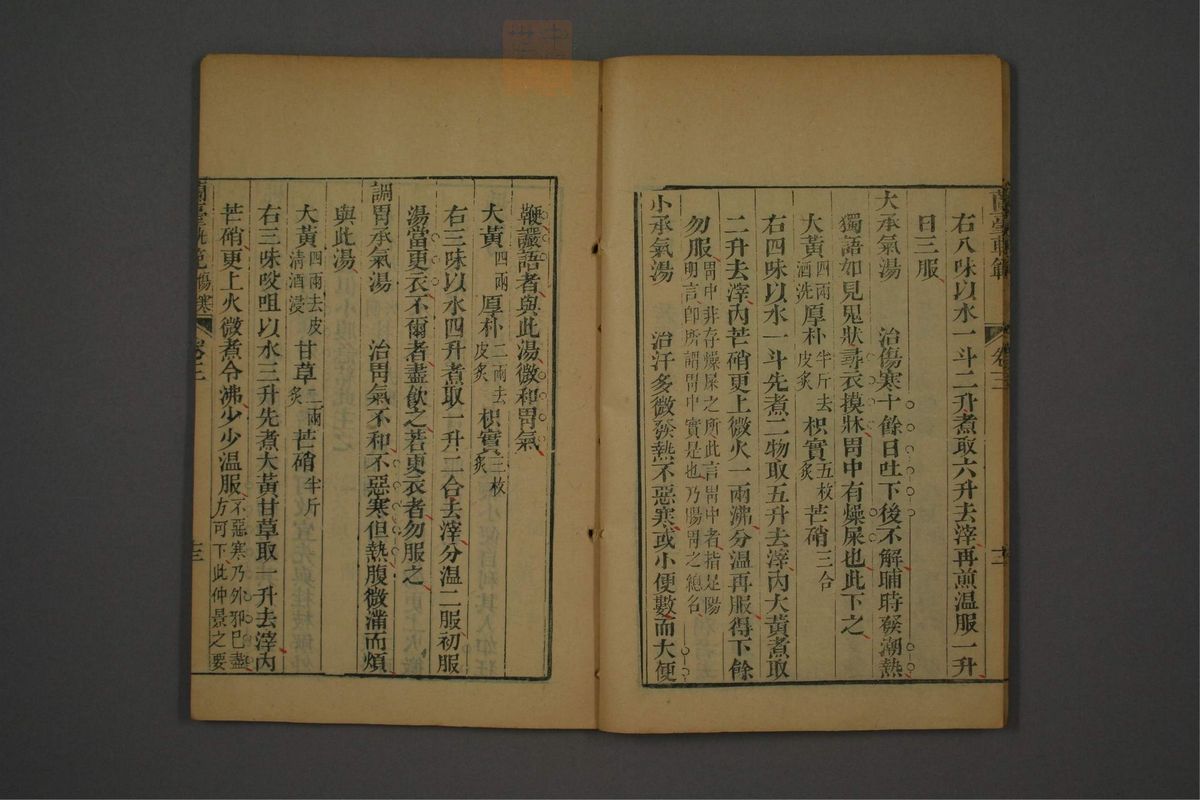 右八味以水一斗二升煮取六升去滓再煎温服一升
日三服
大承氣湯　治傷寒十餘日吐下後不解晡時發潮熱
獨語如見鬼狀尋衣摸牀胃中有燥屎也此下之
大黃四兩酒洗厚朴半斤去皮炙枳實五枚炙芒硝三合
右四味以水一斗先煮二物取五升去滓內大黃煮取
二升去滓內芒硝更上微火一兩沸分温再服得下餘
勿服胃中非存燥屎之所此言胃中者指是陽明言卽所謂胃中實是也乃腸胃之總名
小承氣湯　治汗多微發熱不惡寒或小便數而大便
鞕讝語者與此湯微和胃氣
大黃四兩厚朴二兩去皮炙枳實三枚炙
右三味以水四升煮取一升二合去滓分温二服初服
湯當更衣不爾者盡飲之若更衣者勿服之
調胃承氣湯　治胃氣不和不惡寒但熱腹微滿而煩
與此湯
大黃四兩去皮清酒浸甘草二兩炙芒硝半斤
右三味㕮咀以水三升先煮大黃甘草取一升去滓內
芒硝更上火微煮令沸少少温服不惡寒乃外邪已盡方可下此仲景之要
卷三
十三